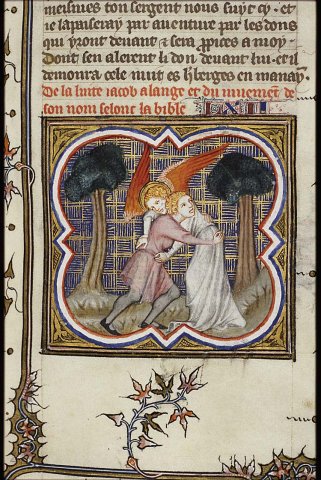 mesmes ton sergent nous suyt cy. et
ie lapaiseray par auenture par les dons
qui yront deuant et sera propices a moy.
Dont sen alerent li don deuant lui. et il
demoura celle nuit es h'berges en manaym.
De la luite iacob a lange et du muement de
son nom selonc la bible. LXII.